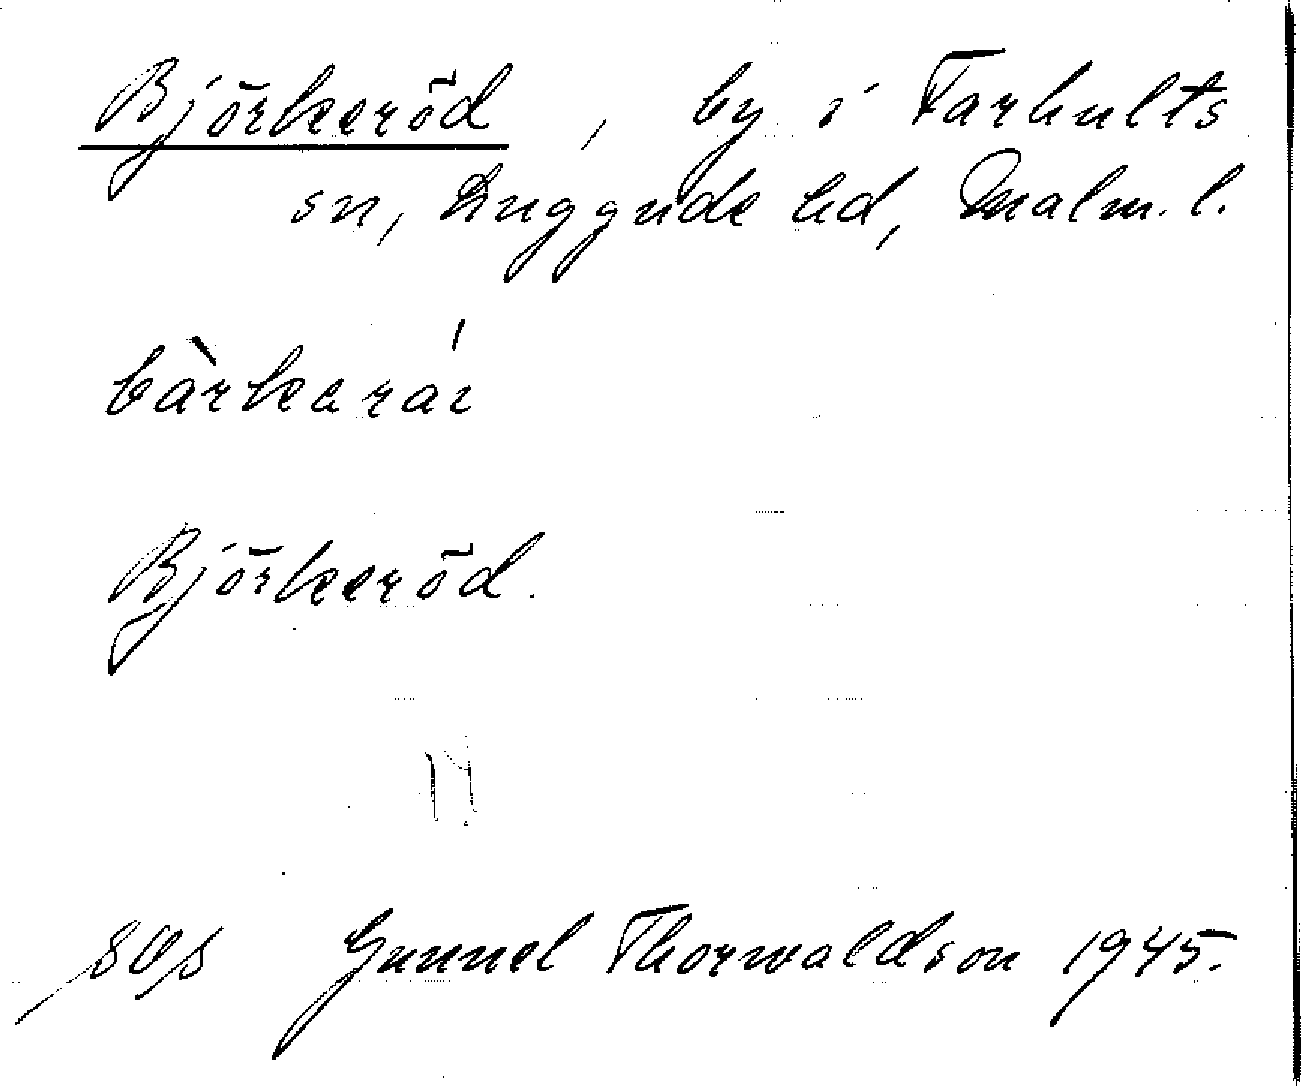 Björkeröd, by i Farhults
sn, Luggude hd, Malm. l.
bàrkará​ı
Björkeröd.
Gunnel Thorwaldson 1945.